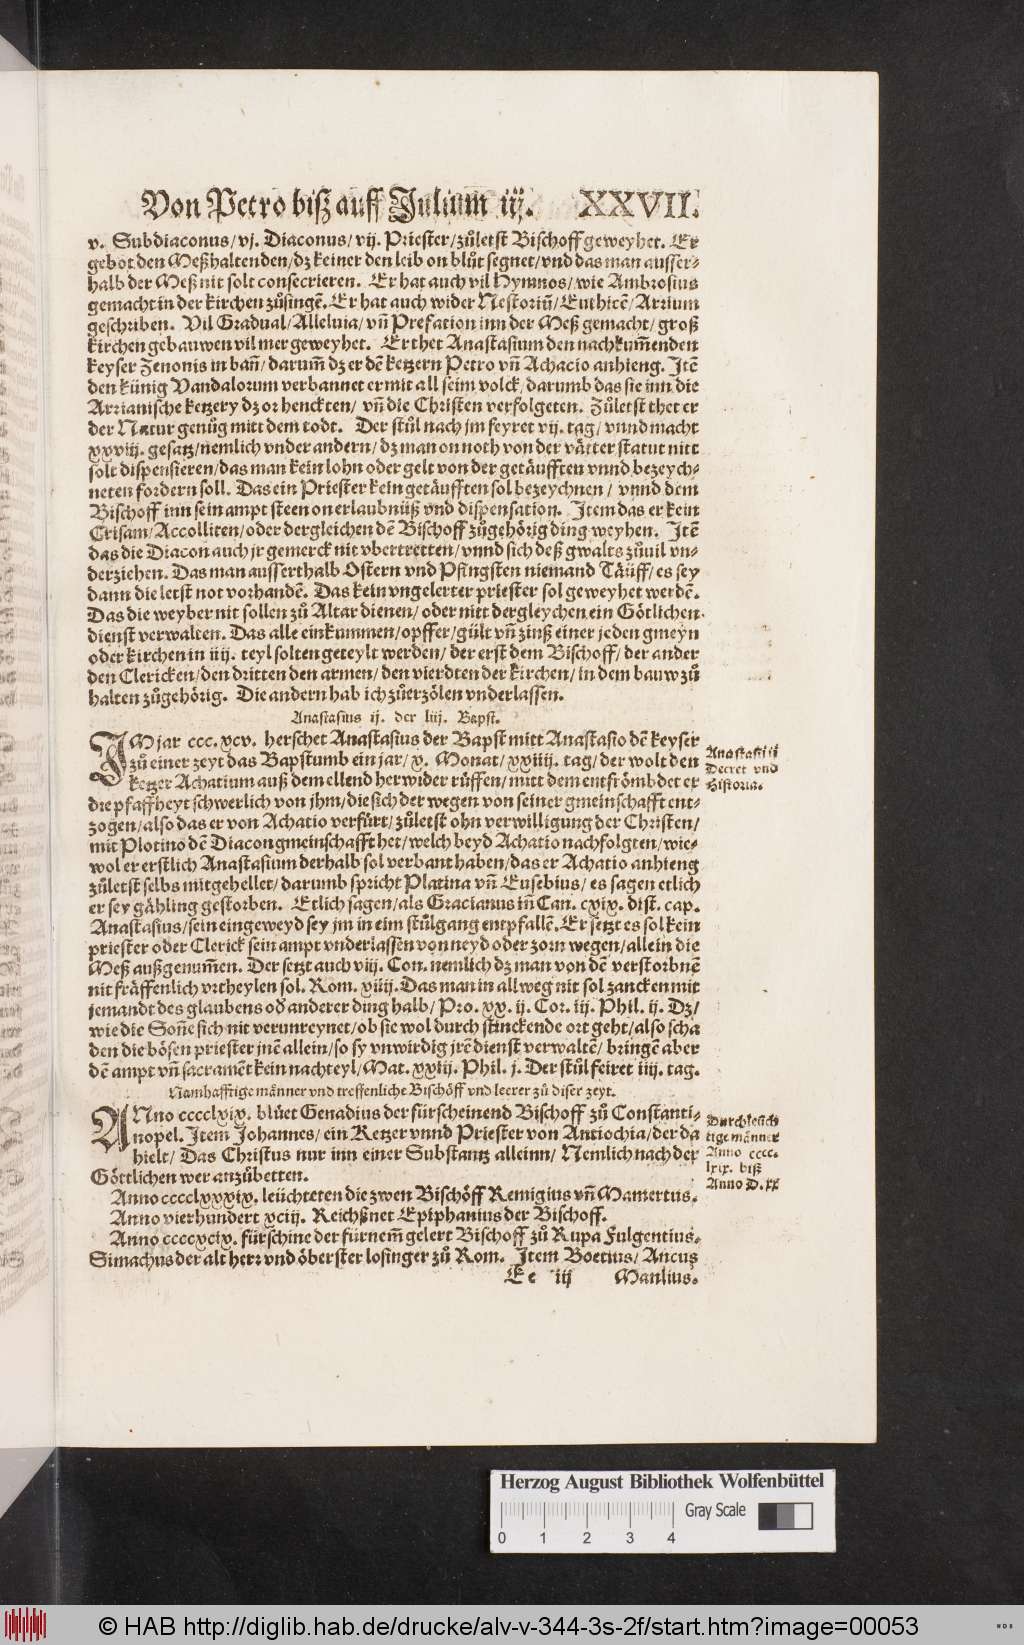 Von Petro biß auff Julium iij. XXVII.
v. Subdiaconus/ vj. Diaconus/ vij. Priester/ zůletst Bischoff geweyhet. Er
gebot den Meßhaltenden/ dz keiner den leib on blůt segnet/ vnd das man ausser-
halb der Meß nit solt consecrieren. Er hat auch vil Hymnos/ wie Ambrosius
gemacht in der kirchen zůsingē. Er hat auch wider Nestoriū/ Euthicē/ Arrium
geschriben. Vil Gradual/ Alleluia/ vñ Prefation inn der Meß gemacht/ groß
kirchen gebauwen vil mer geweyhet. Er thet Anastasium den nachkum̄enden
keyser Zenonis in bañ/ darum̄ dz er dē ketzern Petro vñ Achacio anhieng. Itē
den künig Vandalorum verbannet er mit all seim volck/ darumb das sie inn die
Arrianische ketzery dz or henckten/ vñ die Christen verfolgeten. Zůletst thet er
der Natur genůg mitt dem todt. Der stůl nach jm feyret vij. tag/ vnnd macht
xxviij. gesatz/ nemlich vnder andern/ dz man on noth von der vätter statut nitt
solt dispensieren/ das man kein lohn oder gelt von der getäufften vnnd bezeych-
neten fordern soll. Das ein Priester kein getäufften sol bezeychnen/ vnnd dem
Bischoff inn sein ampt steen on erlaubnüß vnd dispensation. Item das er kein
Crisam/ Accolliten/ oder dergleichen dē Bischoff zůgehörig ding weyhen. Itē
das die Diacon auch jr gemerck nit vbertretten/ vnnd sich deß gwalts zůuil vn-
derziehen. Das man ausserthalb Ostern vnd Pfingsten niemand Täüff/ es sey
dann die letst not vorhandē. Das kein vngelerter priester sol geweyhet werdē.
Das die weyber nit sollen zů Altar dienen/ oder nitt dergleychen ein Götlichen
dienst verwalten. Das alle einkummen/ opffer/ gült vñ zinß einer jeden gmeyn
oder kirchen in iiij. teyl solten geteylt werden/ der erst dem Bischoff/ der ander
den Clericken/ den dritten den armen/ den vierdten der kirchen/ in dem bauw zů
halten zůgehörig. Die andern hab ich zůerzölen vnderlassen.
Anastasius ij. der liij. Bapst.
IM jar ccc. xcv. herschet Anastasius der Bapst mitt Anastasio dē keyser
zů einer zeyt das Bapstumb ein jar/ x. Monat/ xxiiij. tag/ der wolt den
ketzer Achatium auß dem ellend herwider růffen/ mitt dem entfrömbdet er
die pfaffheyt schwerlich von jhm/ die sich der wegen von seiner gmeinschafft ent-
zogen/ also das er von Achatio verfürt/ zůletst ohn verwilligung der Christen/
mit Plotino dē Diacon gmeinschafft het/ welch beyd Achatio nachfolgten/ wie-
wol er erstlich Anastasium derhalb sol verbant haben/ das er Achatio anhieng
zůletst selbs mitgehellet/ darumb spricht Platina vñ Eusebius/ es sagen etlich
er sey gähling gestorben. Etlich sagen/ als Gracianus iñ Can. cxix. dist. cap.
Anastasius/ sein eingeweyd sey jm in eim stůlgang entpfallē. Er setzt es sol kein
priester oder Clerick sein ampt vnderlassen von neyd oder zorn wegen/ allein die
Meß außgenum̄en. Der setzt auch viij. Con. nemlich dz man von dē verstorbnē
nit fräffenlich vrtheylen sol. Rom. xiiij. Das man in all weg nit sol zancken mit
jemandt des glaubens od anderer ding halb/ Pro. xx. ij. Cor. iij. Phil. ij. Dz/
wie die Soñe sich nit verunreynet/ ob sie wol durch stinckende ort geht/ also scha
den die bösen priester jnē allein/ so sy vnwirdig jrē dienst verwaltē/ bringē aber
dē ampt vñ sacramēt kein nachteyl/ Mat. xxiij. Phil. j. Der stůl feiret iiij. tag.
Anastasij ij
Decret vnd
Historia.
Namhafftige männer vnd treffenliche Bischöff vnd leerer zů diser zeyt.
ANno cccclxix. blüet Genadius der fürscheinend Bischoff zů Constanti-
nopel. Item Johannes/ ein Retzer vnnd Priester von Antiochia/ der da
hielt/ Das Christus nur inn einer Substantz alleinn/ Nemlich nach der
Göttlichen wer anzůbetten.
Anno cccclxxxix. leüchteten die zwen Bischöff Remigius vñ Mamertus.
Anno vierhundert xciij. Reichßnet Epiphanius der Bischoff.
Anno ccccxcix. fürschine der fürnem̄ gelert Bischoff zů Rupa Fulgentius.
Simachus der alt herr vnd öberster losinger zů Rom. Item Boetius/ Ancus
Durchleuch
tige männer
Anno cccc.
lxix. biß
Anno D.xx
Ee iij Manlius.
Herzog August Bibliothek Wolfenbüttel
Gray Scale
0 1 2 3 4
© HAB http://diglib.hab.de/drucke/alv-v-344-3s-2f/start.htm?image=00053